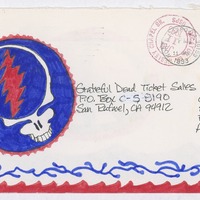 Grateful Dead Ticket Sales
P.O. Box C-S 8190
San Rafael, CA 94912